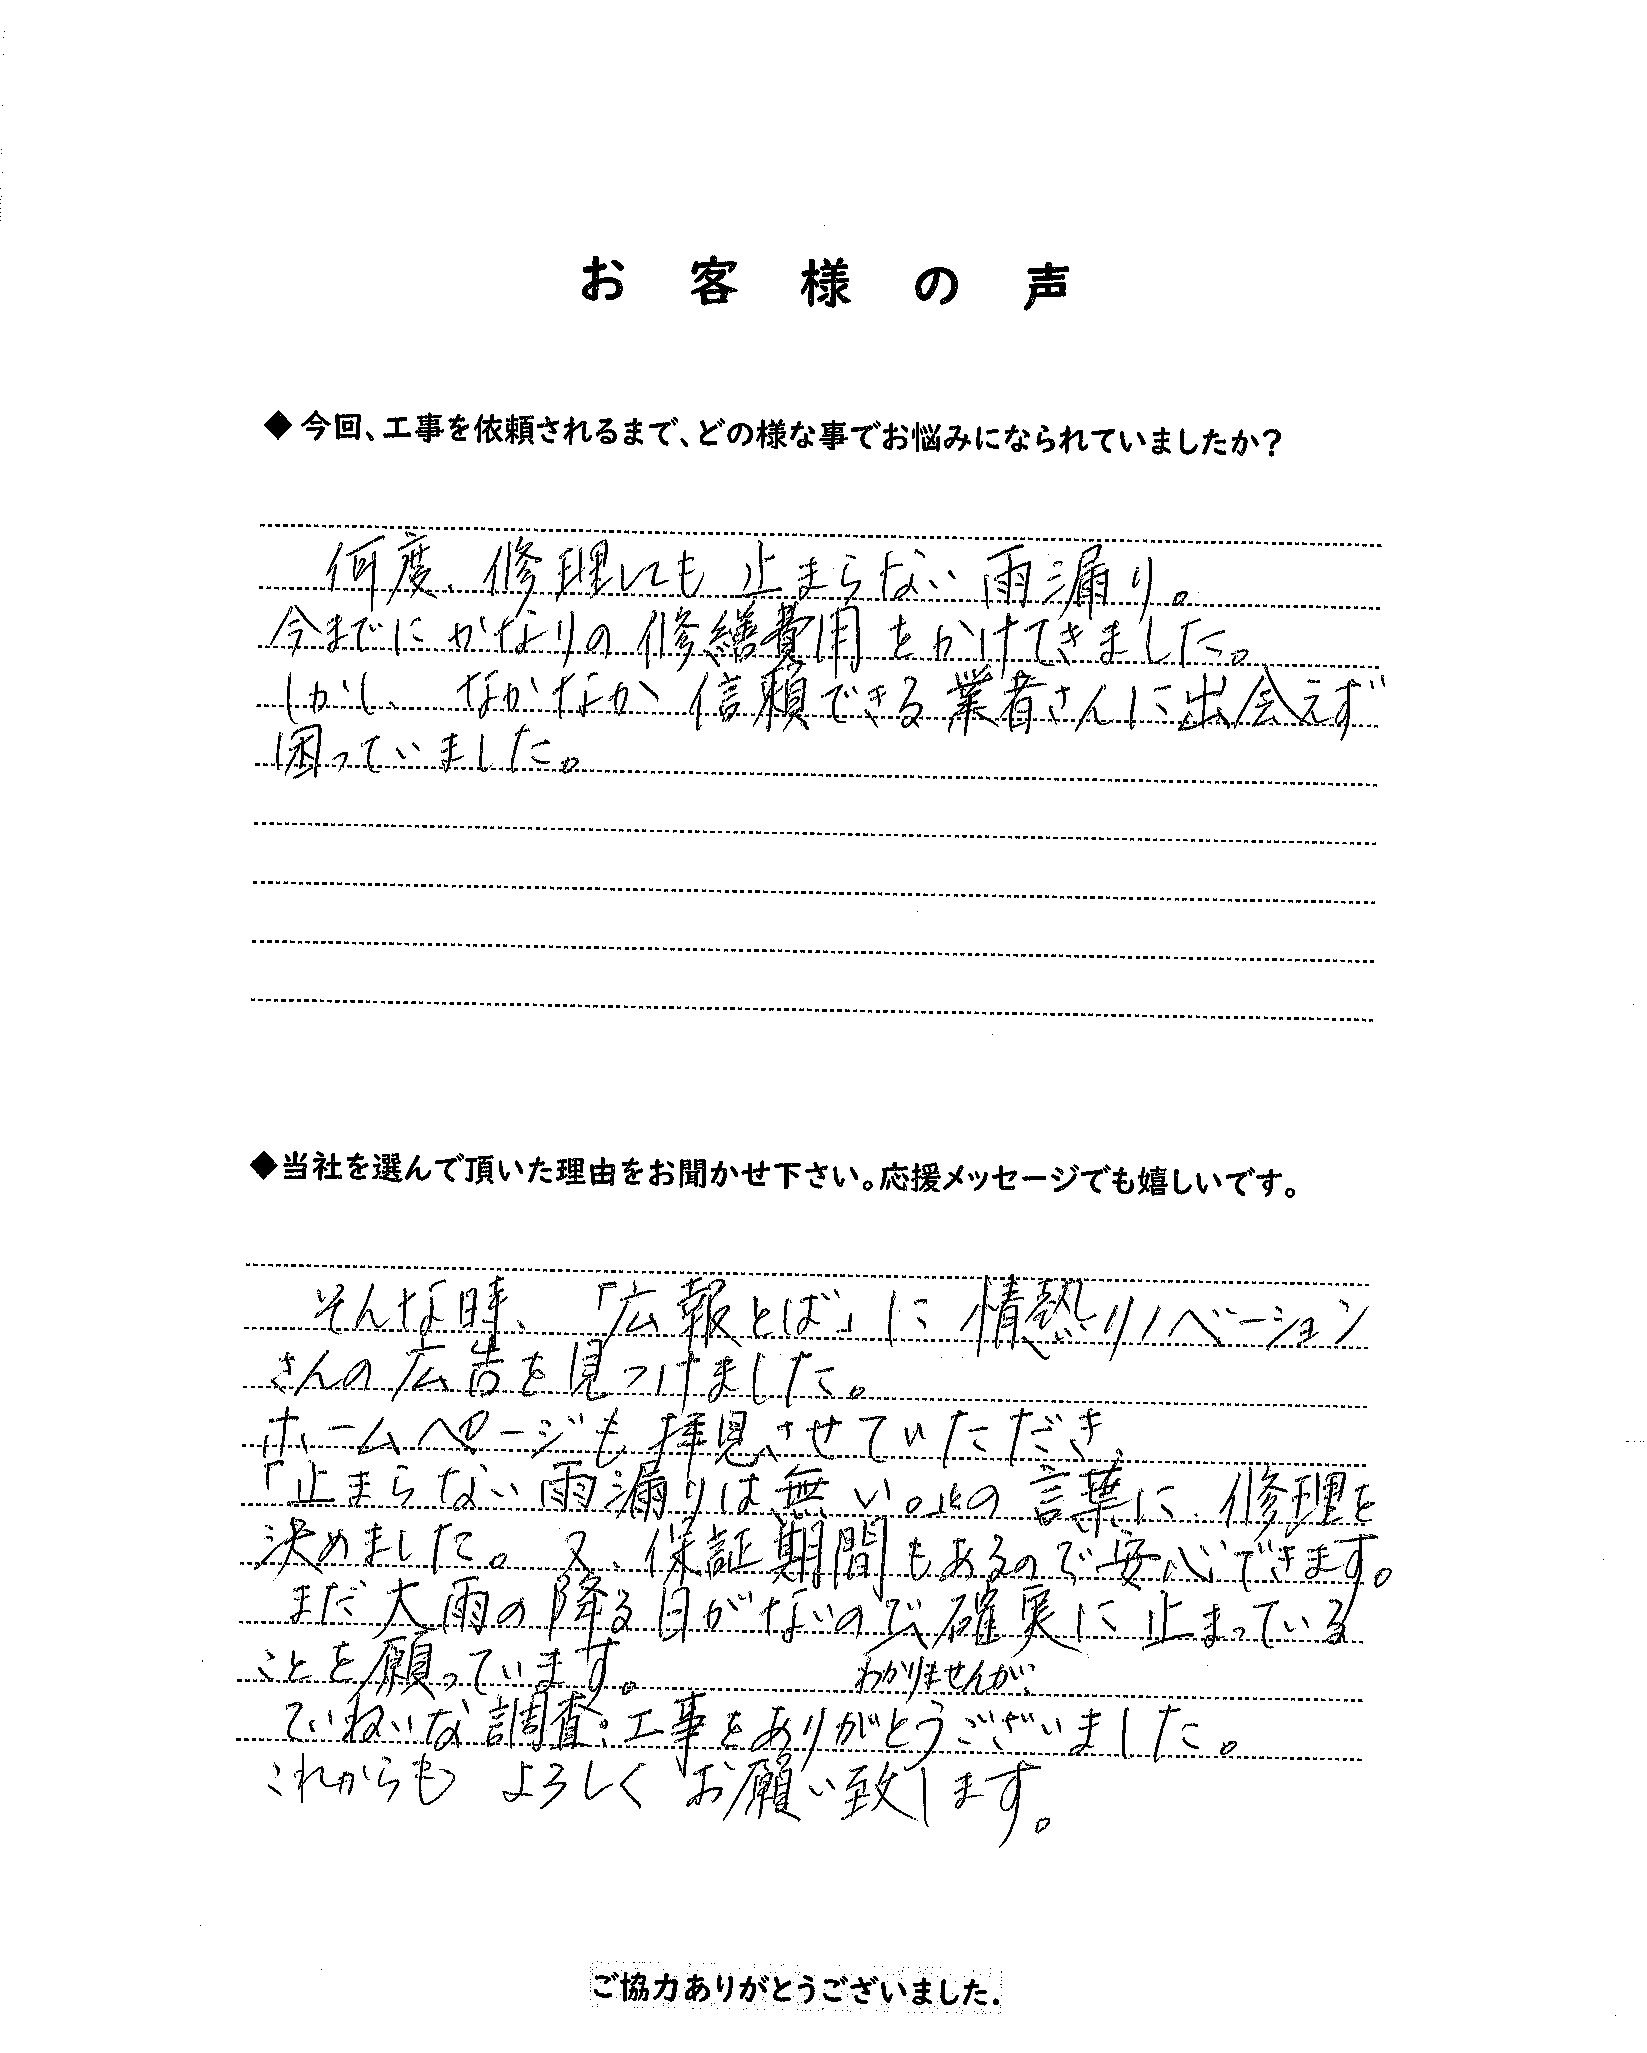 お客様の声
◆今回、工事を依頼されるまで、どの様な事でお悩みになられていましたか?
何度、修理しても止まらない雨漏り。
今までにかなりの修繕費用をかけてきました。
しかし、なかなか信頼できる業者さんに出会えず
困っていました。
◆当社を選んで頂いた理由をお聞かせ下さい。応援メッセージでも嬉しいです。
そんな時、「広報とば」に情熱リノベーション
さんの広告を見つけました。
ホームページも拝見させていただき、
「止まらない雨漏りは無い。」との言葉に、修理を
決めました。又、保証期間もあるので安心できます。
まだ大雨の降る日がないので、確実に止まっている
わかりませんが、
ことを願っています。
ていねいな調査・工事をありがとうございました。
これからも よろしく お願い致します。
ご協力ありがとうございました.